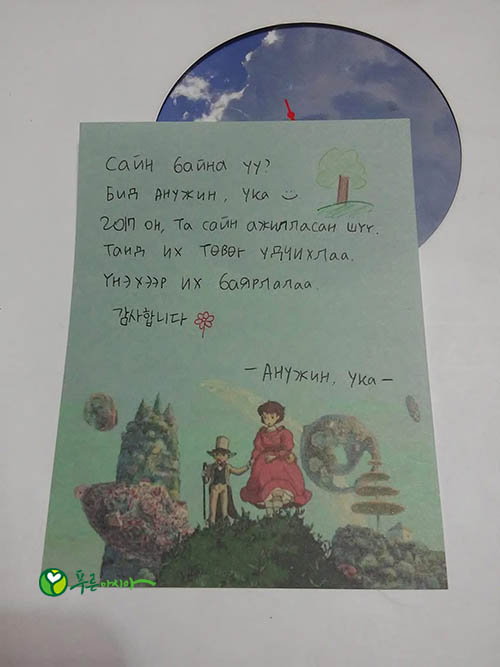 Сайн байна уу?
Бид Анужин, Ука
2017 он, та сайн ажилласан шүү.
Танд их төвөг удчихлаа.
Үнэхээр их баярлалаа.
감사합니다
- Анужин, Ука -
푸른아시아